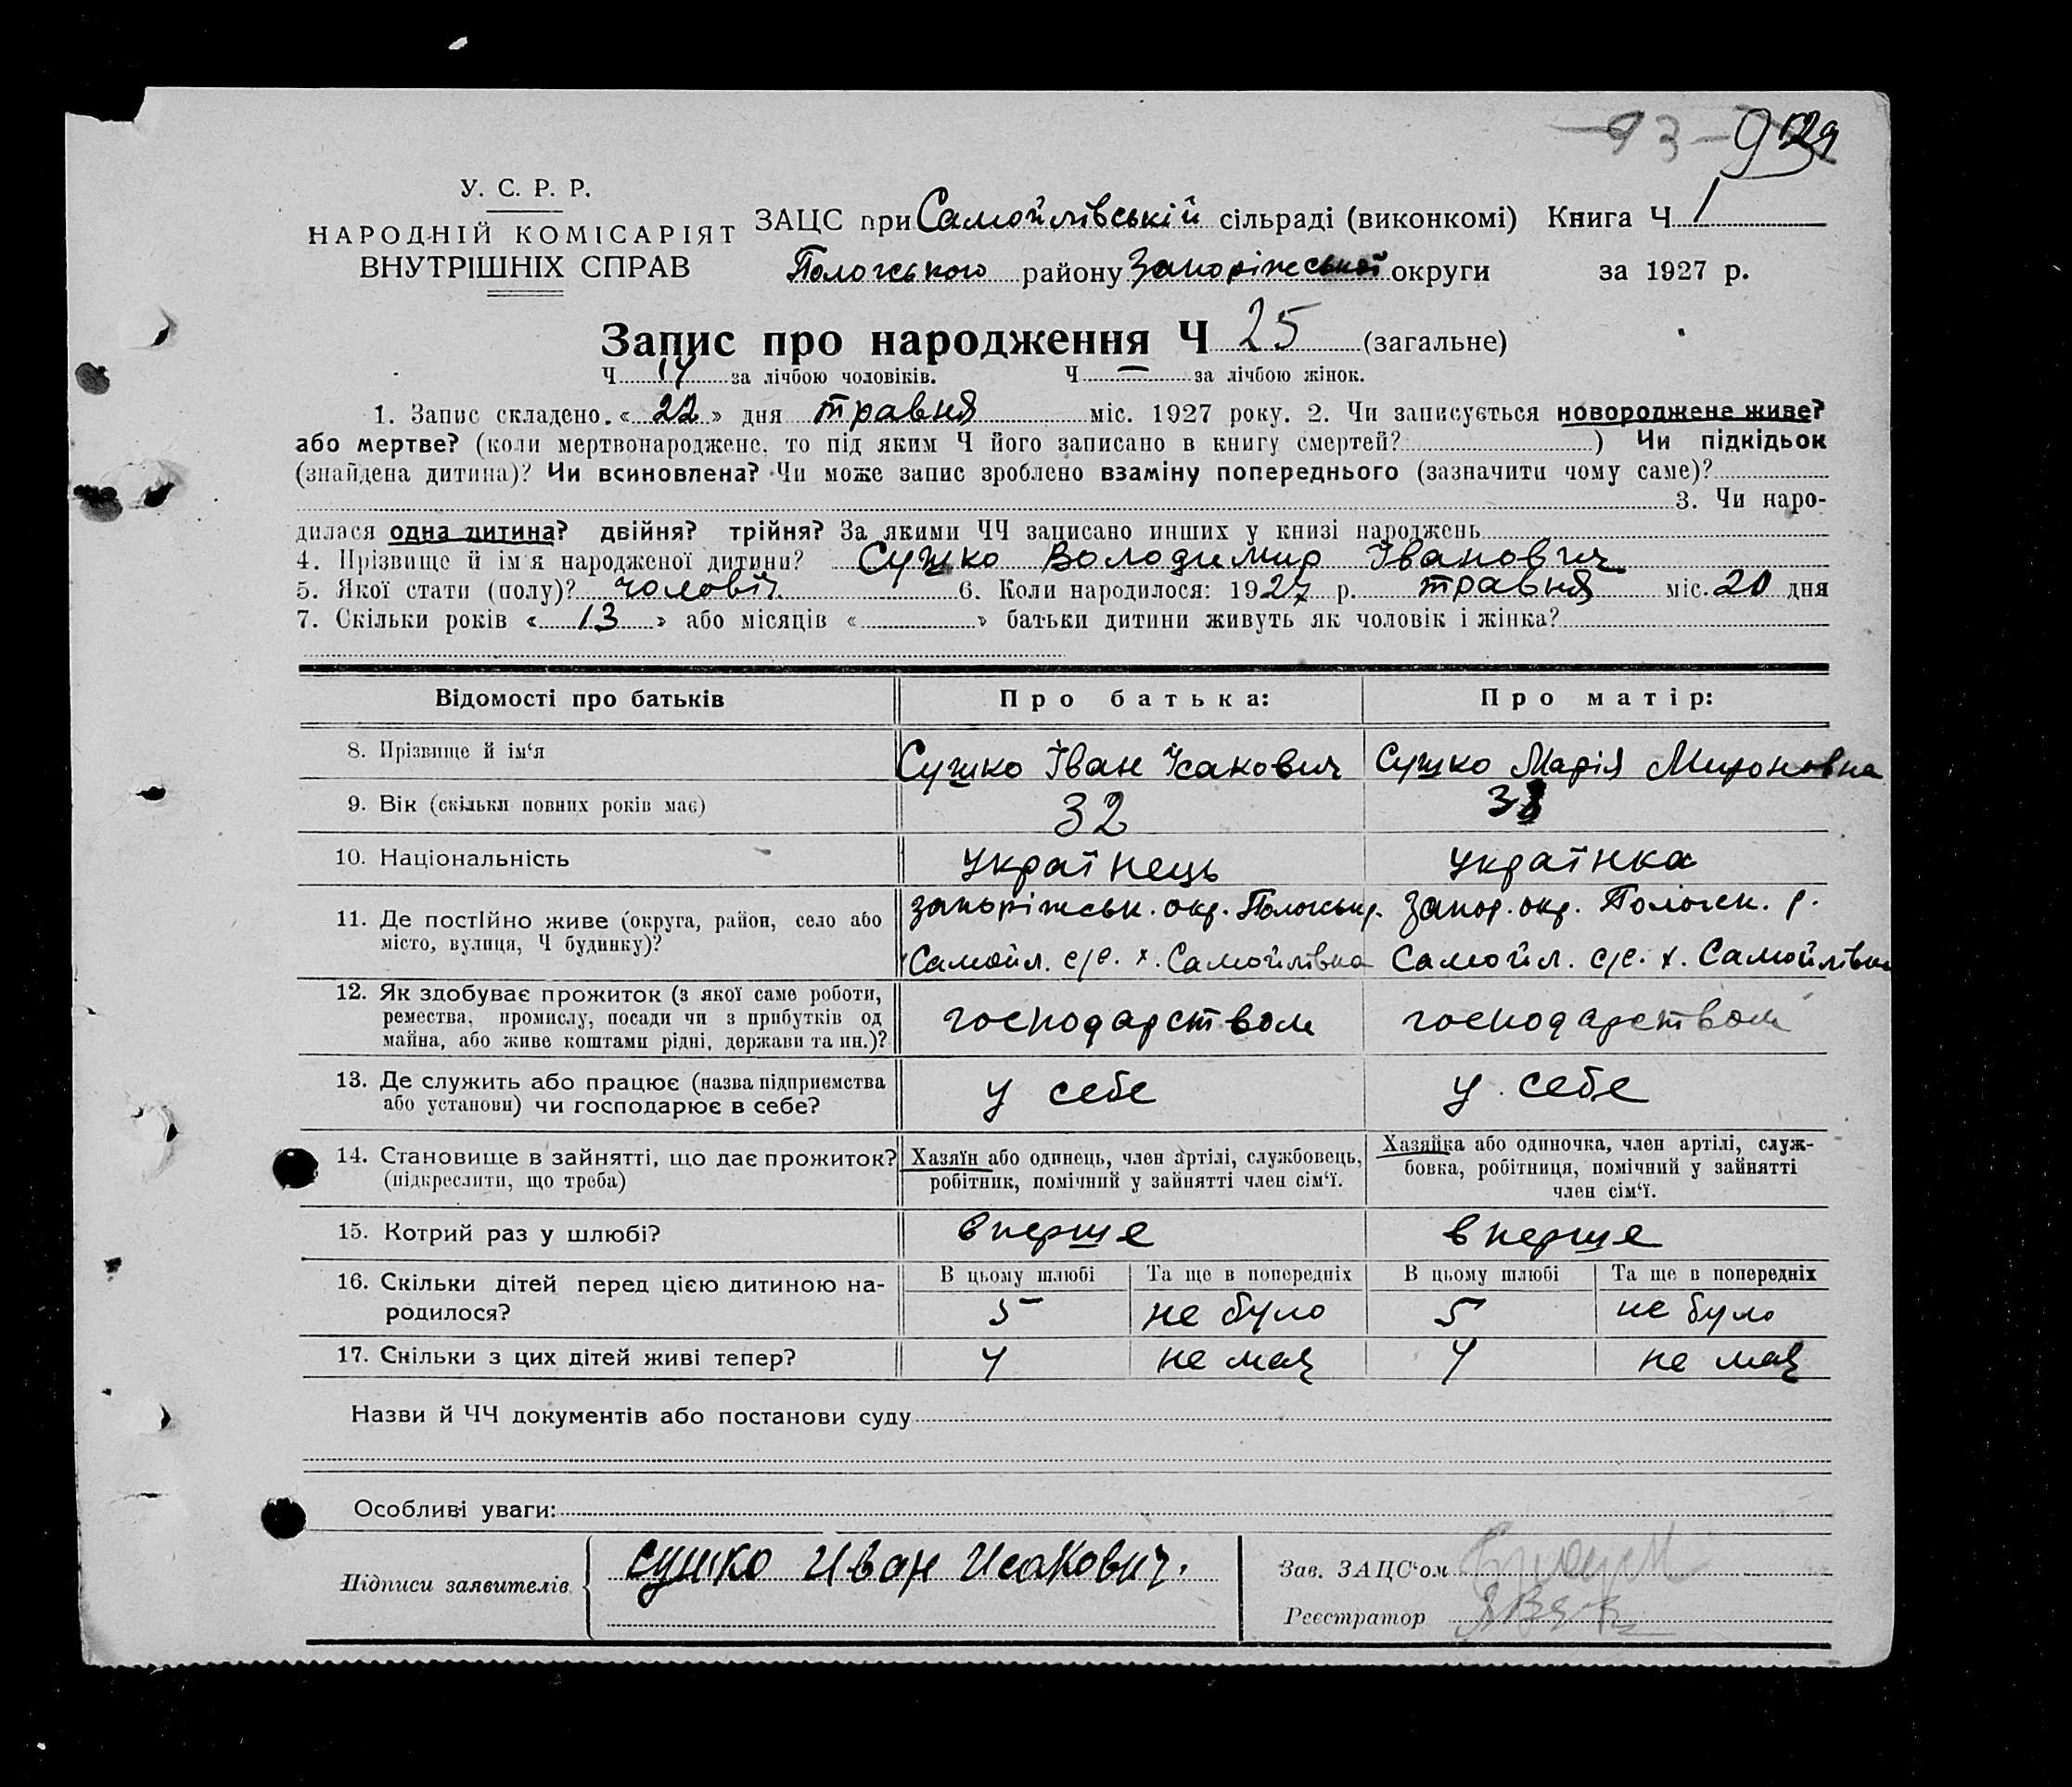 93 - 
У. С. Р. Р.
НАРОДНІЙ КОМІСАРІЯТ
ВНУТРІШНІХ СПРАВ
ЗАЦС при Самойлівській сільраді (виконкомі) Книга Ч 1
Пологського району Запоріжської округи за 1927 р.
Запис про народження Ч 25 (загальне)
Ч 14 за лічбою чоловіків. Ч — за лічбою жінок.
1. Запис складено « 22 » дня травня міс. 1927 року. 2. Чи записується новороджене живе?
або мертве? (коли мертвонароджене, то під яким Ч його записано в книгу смертей? ) Чи підкідьок
(знайдена дитина)? Чи всиновлена? Чи може запис зроблено взаміну попереднього (зазначити чому саме)?
3. Чи наро-
дилася одна дитина? двійня? трійня? За якими ЧЧ записано инших у книзі народжень
4. Прізвище й ім'я народженої дитини? Сушко Володимир Іванович
5. Якої стати (полу)? чоловіч. 6. Коли народилося: 1927 р. травня міс. 20 дня
7. Скільки років « 13 » або місяців « » батьки дитини живуть як чоловік і жінка?
Відомості про батьків Про батька: Про матір:
8. Прізвище й ім‘я Сушко Іван Ісакович Сушко Марія Мироновна
9. Вік (скільки повних років має) 32
10. Національність українець українка
11. Де постійно живе (округа, район, село або місто, вулиця, Ч будинку)?
запоріжськ. окр. Пологськ р. Запор. окр. Пологск. р.
Самойл. с/с. х. Самойлівка Самойл. с/с. х. Самойлівка
12. Як здобуває прожиток (з якої саме роботи,
ремества, промислу, посади чи з прибутків од
майна, або живе коштами рідні, держави та ин.)? господарством господарством
13. Де служить або працює (назва підприємства
або установи) чи господарює в себе? у себе у себе
14. Становище в зайнятті, що дає прожиток?
(підкреслити, що треба)
Хазяїн або одинець, член артілі, службовець,
робітник, помічний у зайнятті член сім‘ї.
Хазяйка або одиночка, член артілі, служ-
бовка, робітниця, помічний у зайнятті
член сім‘ї.
15. Котрий раз у шлюбі? вперше вперше
16. Скільки дітей перед цією дитиною на-
родилося?
В цьому шлюбі Та ще в попередніх В цьому шлюбі Та ще в попередніх
5 не було 5 не було
17. Скільки з цих дітей живі тепер? 4 не має 4 не має
Назви й ЧЧ документів або постанови суду
Особливі уваги:
Підписи заявителів Сушко Иван Исакович.
Зав. ЗАЦС‘ом
Реєстратор